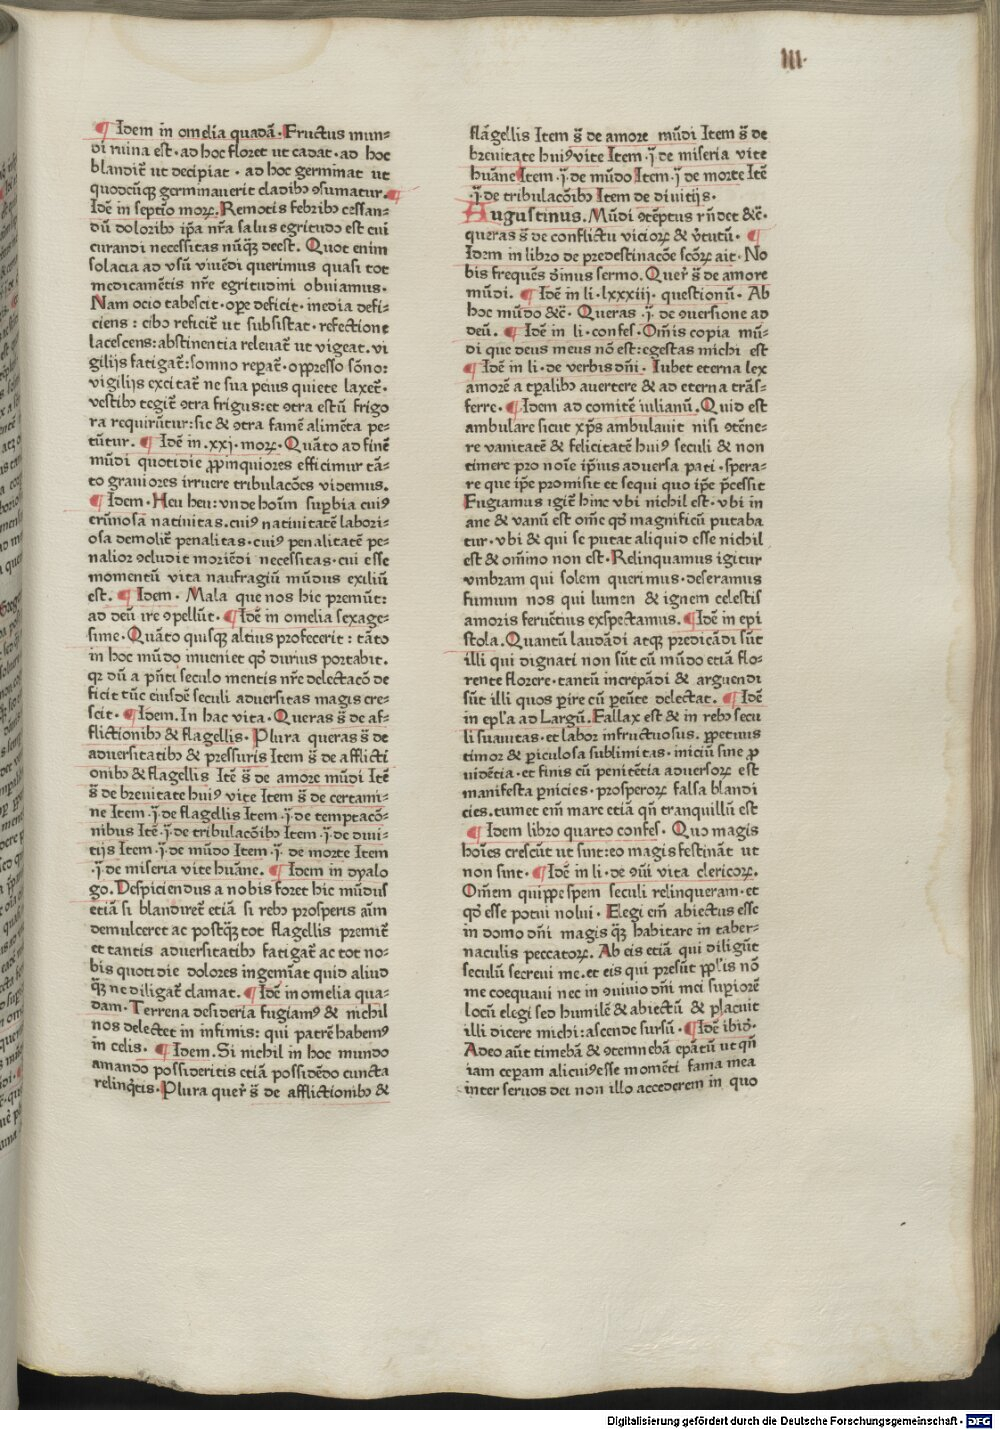 III.
¶ Idem in omelia quadā. Fructus mun⸗
di ruina est. ad hoc floret ut cadat. ad hoc
blandit̄ ut decipiat. ad hoc germinat ut
quodcūqꝫ germinauerit cladibꝰ ꝯsumatur. ¶
Idē in septīo moꝝ. Remotis febribꝰ cessan⸗
dū doloribꝰ ip̄a nr̄a salus egritudo est cui
curandi necessitas nūqꝫ deest. Quot enim
solacia ad vsū viuēdi querimus quasi tot
medicamētis nr̄e egritudini obuiamus.
Nam ocio tabescit. ope deficit. inedia defi⸗
ciens: cibo reficit̄ ut subsistat. refectione
lacescens: abstinentia releuat̄ ut vigeat. vi
gilijs fatigat̄: somno repat̄. oppresso sōno:
vigilijs excitat̄ ne sua peius quiete laxet̄.
vestibꝰ tegit̄ ꝯtra frigus: et ꝯtra estū frigo
ra requirūtur: sic & ꝯtra famē alimēta pe⸗
tūtur. ¶ Idē in. xxj. moꝝ. Quāto ad finē
mūdi quotidie ꝓpinquiores efficimur tā⸗
to grauiores irruere tribulacōes videmus.
¶ Idem. Heu heu: vnde hoīm suꝑbia cuiꝰ
erūnosa natiuitas. cuiꝰ natiuitatē labori⸗
osa demolit̄ penalitas. cuiꝰ penalitatē pe⸗
nalior ꝯcludit moriēdi necessitas. cui esse
momentū vita naufragiū mūdus exiliū
est. ¶ Idem. Mala que nos hic premūt:
ad deū ire ꝯpellūt. ¶ Idē in omelia sexage⸗
sime. Quāto quisqꝫ altius profecerit: tāto
in hoc mūdo inueniet qđ durius portabit.
qꝛ dū a p̄nti seculo mentis nr̄e delectacō de
ficit tūc eiusdē seculi aduersitas magis cre⸗
scit. ¶ Idem. In hac vita. Queras s̄ de af⸗
flictionibꝰ & flagellis. Plura queras s̄ de
aduersitatibꝰ & pressuris Item s̄ de afflicti
onibꝰ & flagellis Itē s̄ de amore mūdi Itē
s̄ de breuitate huiꝰ vite Item s̄ de certami⸗
ne Item .j̄. de flagellis Item .j̄. de temptacō⸗
nibus Itē .j̄. de tribulacōibꝰ Item .j̄. de diui⸗
tijs Item .j̄. de mūdo Item .j̄. de morte Item
.j̄. de miseria vite huāne. ¶ Idem in dyalo
go. Despiciendus a nobis foret hic mūdus
etiā si blandiret̄ etiā si rebꝰ prosperis aīm
demulceret ac postqꝫ tot flagellis premit̄
et tantis aduersitatibꝰ fatigat̄ ac tot no⸗
bis quotidie dolores ingemīat quid aliud
qꝫ ne diligat̄ clamat. ¶ Idē in omelia qua⸗
dam. Terrena desideria fugiamꝰ & nichil
nos delectet in infimis: qui patrē habemꝰ
in celis. ¶ Idem. Si nichil in hoc mundo
amando possideritis etiā possidēdo cuncta
relinq̄tis. Plura quer̄ s̄ de afflictionibꝰ &
flāgellis Item s̄ de amore mūdi Item s̄ de
breuitate huiꝰ vite Item .j̄. de miseria vite
huāne Item .j̄. de mūdo Item .j̄. de morte Itē
.j̄. de tribulacōibꝰ Item de diuitijs.
Augustinus. Mūdi ꝯtēptus rn̄det &c̄.
queras s̄ de conflictu vicioꝝ & v̄tutū. ¶
Idem in libro de predestinacōe scōꝝ ait. No
bis frequēs diuinus sermo. Quer̄ s̄ de amore
mūdi. ¶ Idē in li. lxxxiij. questionū. Ab
hoc mūdo &c̄. Queras .j̄. de ꝯuersione ad
deū. ¶ Idē in li. confes. Om̄is copia mū⸗
di que deus meus nō est: egestas michi est
¶ Idē in li. de verbis dn̄i. Iubet eterna lex
amorē a tꝑalibꝰ auertere & ad eterna trās⸗
ferre. ¶ Idem ad comitē iulianū. Quid est
ambulare sicut xp̄s ambulauit nisi ꝯtēne⸗
re vanitatē & felicitatē huiꝰ seculi & non
timere pro noīe ip̄ius aduersa pati. spera⸗
re que ip̄e promisit et sequi quo ip̄e p̄cessit
Fugiamus igit̄ hinc vbi nichil est. vbi in
ane & vanū est om̄e qđ magnificū putaba
tur. vbi & qui se putat aliquid esse nichil
est & om̄ino non est. Relinquamus igitur
vmbram qui solem querimus. deseramus
fumum nos qui lumen & ignem celestis
amoris feruētius exspectamus. ¶ Idē in epi
stola. Quantū laudādi atqꝫ predicādi sūt
illi qui dignati non sūt cū mūdo etiā flo⸗
rente florere. tantū increpādi & arguendi
sūt illi quos ꝑire cū ꝑeūte delectat. ¶ Idē
in epl̄a ad Largū. Fallax est & in rebꝰ secu
li suauitas. et labor infructuosus. ꝑpetuus
timor & ꝑiculosa sublimitas. iniciū sine ꝓ
uidētia. et finis cū penitētia aduersoꝝ est
manifesta ꝑnicies. prosperoꝝ falsa blandi
cies. tumet em̄ mare etiā qn̄ tranquillū est
¶ Idem libro quarto confes. Quo magis
hoīes crescūt ut sint: eo magis festināt ut
non sint. ¶ Idē in li. de ꝯm̄i vita clericoꝝ.
Om̄em quippe spem seculi relinqueram. et
qđ esse potui nolui. Elegi em̄ abiectus esse
in domo dn̄i magis qꝫ habitare in taber⸗
naculis peccatoꝝ. Ab eis etiā qui diligūt
seculū secreui me. et eis qui presūt ppl̄is nō
me coequaui nec in ꝯuiuio dn̄i mei suꝑiorē
locū elegi sed humilē & abiectū & placuit
illi dicere michi: ascende sursū. ¶ Idē ibid̄.
Adeo aūt timebā & ꝯtemnebā ep̄atū ut qn̄
iam ceperam alicuiꝰ esse momēti fama mea
inter seruos dei non illo accederem in quo
Digitalisierung gefördert durch die Deutsche Forschungsgemeinschaft - DFG